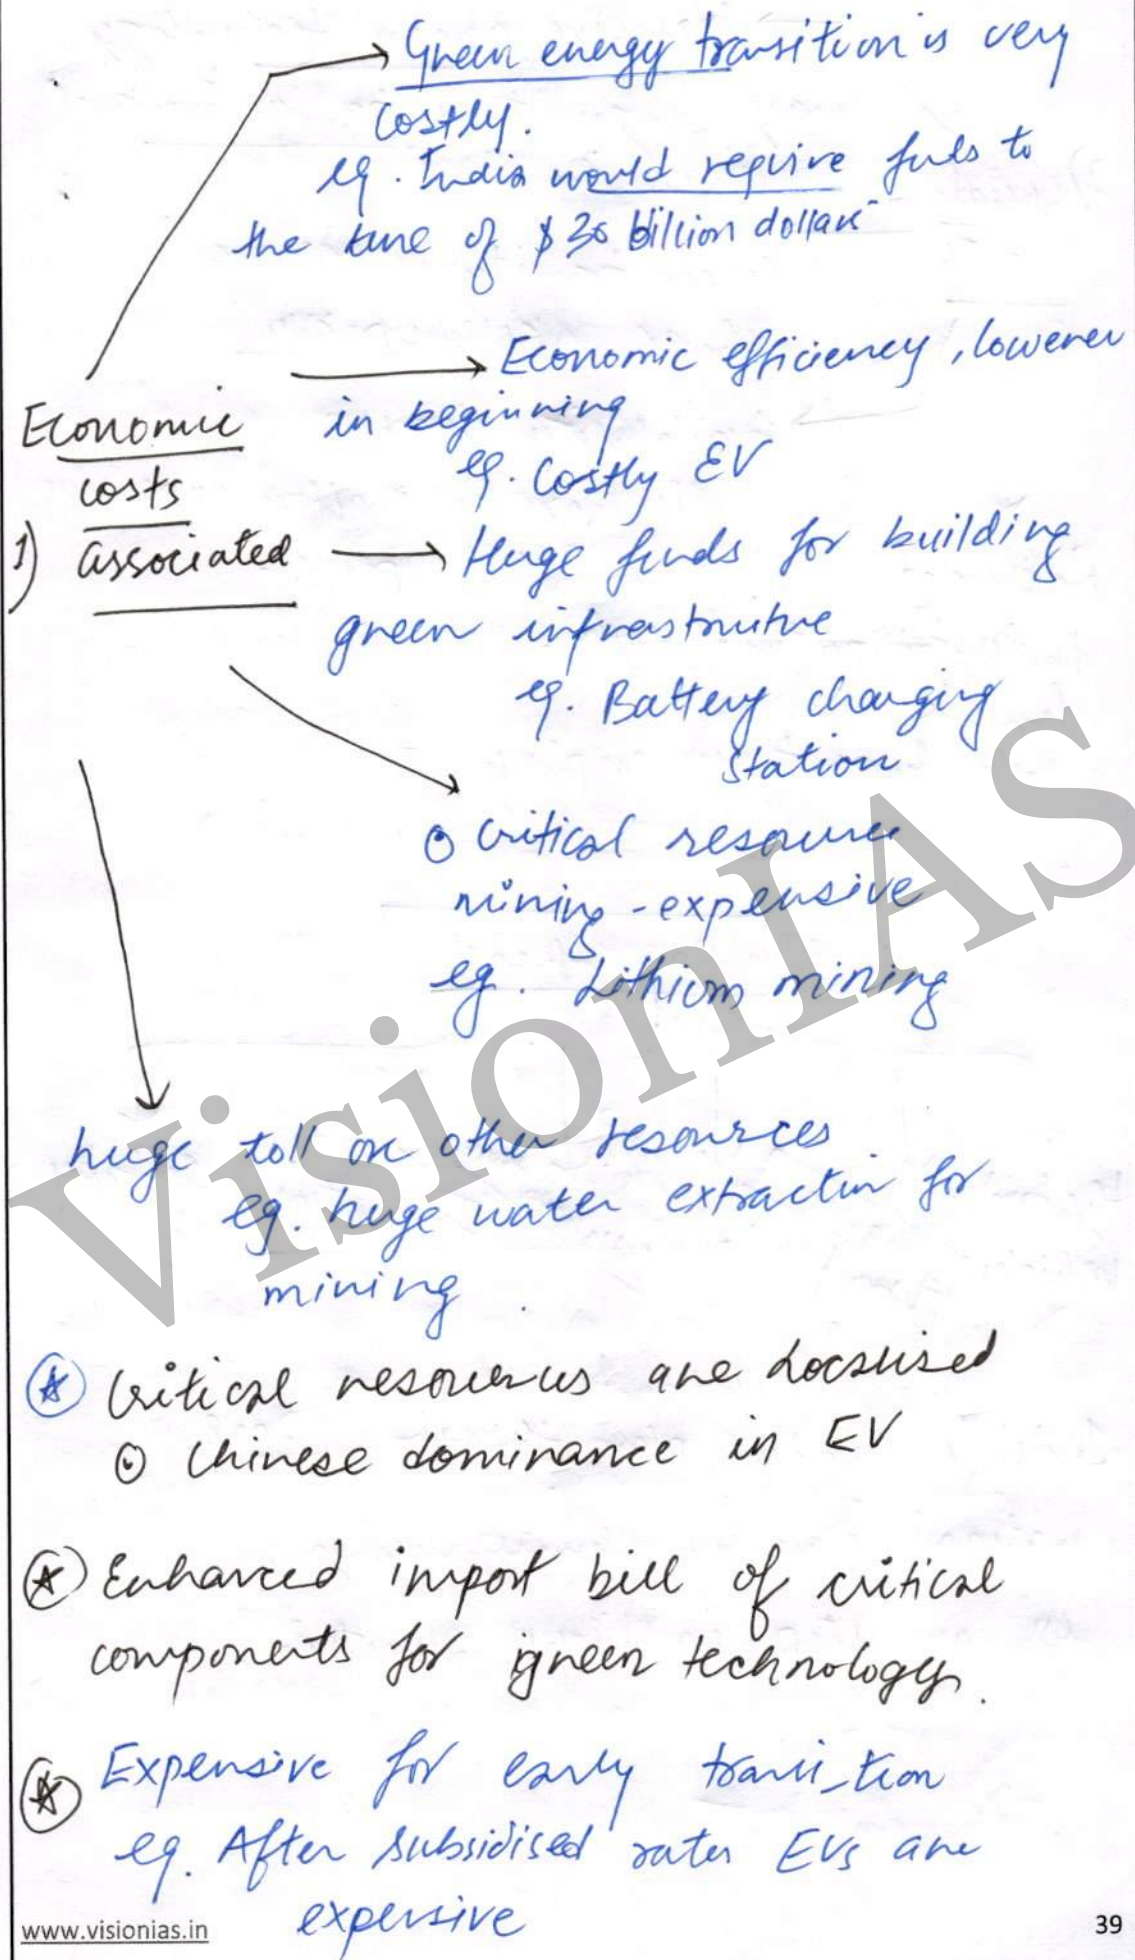 Green energy transition is very
costly.
eg. India would require fuds to
the tune of $30 billion dollars
Economic efficiency, lowerer
in beginning
eg. Costly EV
Economic
costs
1) associated
Huge funds for building
green infrastrutue
eg. Battery charging
station
Critical resource
mining - expensive
eg. Lithium mining
huge toll on other resources
eg. huge water extraction for
mining
Critical resources are Localised
Chinese dominance in EV
Enhanced import bill of critical
components for green technology.
Expensive for early transi-tion
eg. After subsidised rates EVs are
expensive
VisionIAS
www.visionias.in
39